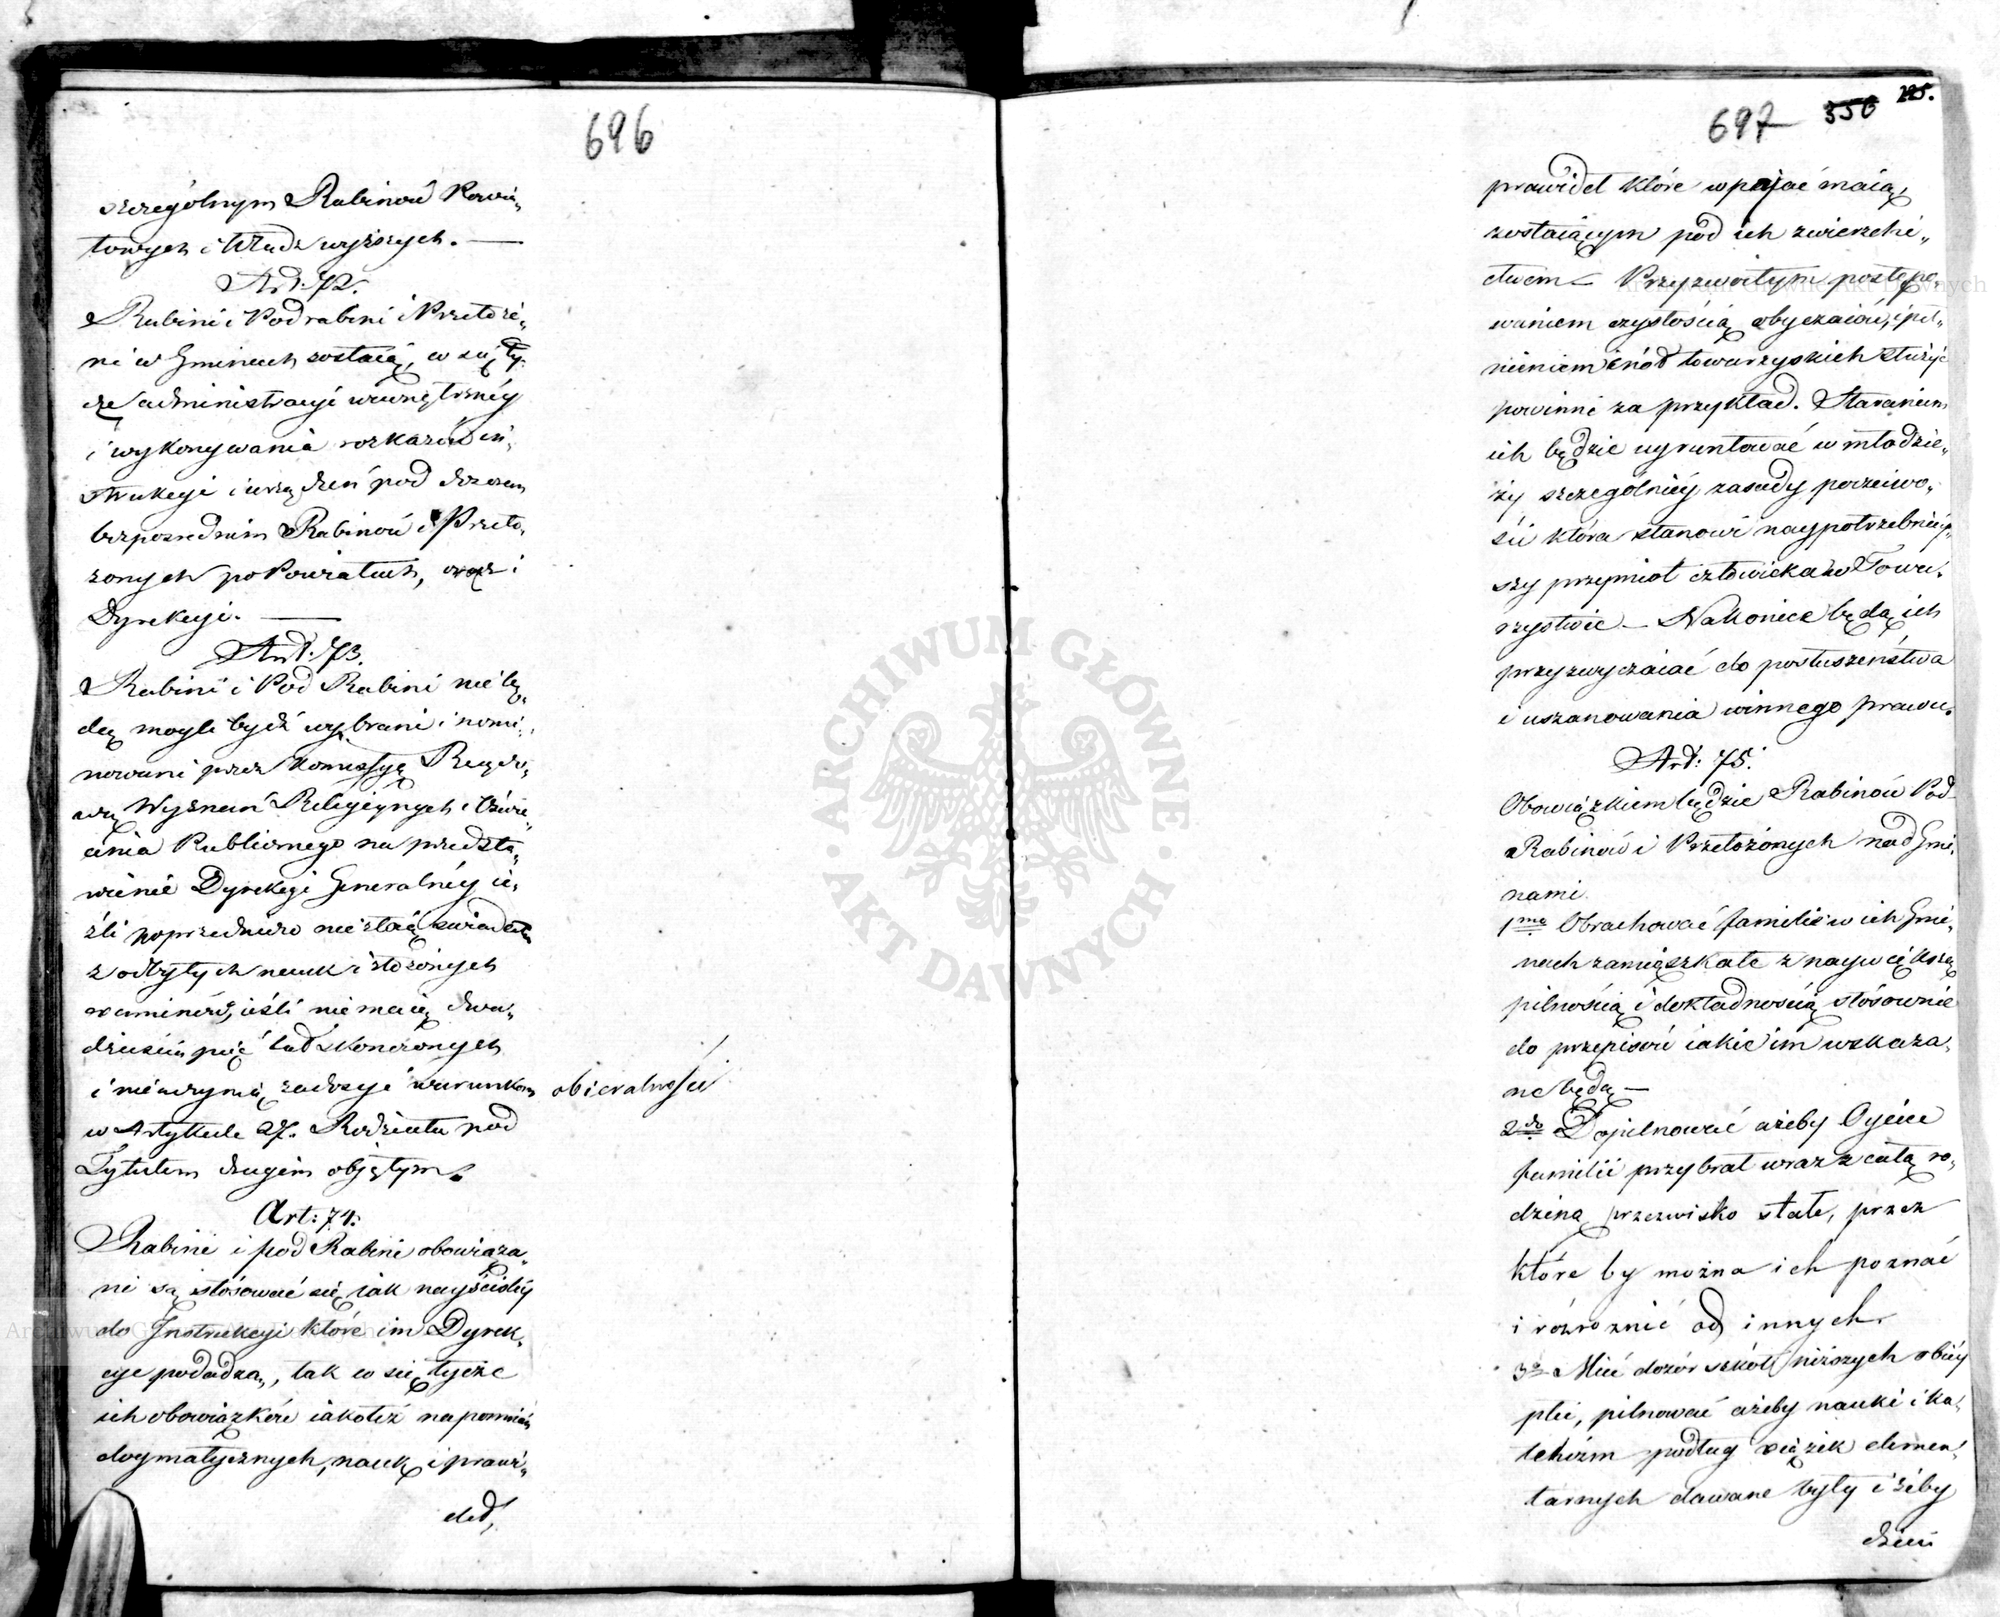 696
szczególnym Rabinów Powia„
towych i Władz wyższych. —
Art. 72.
Rabini i Podrabini i Przełoże„
ni w Gminach zostaią, w co się ty„
cze administracyi wewnętrznéy
i wykonywania rozkazów in„
strukcyi i urządzeń pod dozorem
bezpośrednim Rabinów i Przeło„
żonych po Powiatach, oraz i
Dyrekcyi. —
Art. 73.
Rabini i Pod Rabini nie bę„
dą mogli bydź wybrani i nomi„
nowani przez Kommissyę Rządo„
wą Wyznań Religiynych i Oświe„
cenia Publicznego na przedsta„
wienie Dyrekcyi Generalnéy ie„
źli poprzedniczo nie złożą świadectw
z odbytych nauk i złożonych
examinów, ieśli nie maią dwu„
dziestu pięć lat skończonych
i nie uczynią zadosyć warunkom obieralności
w Artykule 27. Rozdziału pod
Tytułem drugim objętym.
Art: 74.
Rabini i pod Rabini obowiąza„
ni są stósować się iak nayściśléy
do Instrukcyi które im Dyrek„
cye podadzą, tak co się tycze
ich obowiązków iakoteż napomnień
dogmatycznych, nauk i prawi„
deł,
697 350 225.
prawideł które wpajać maią,
zostaiącym pod ich zwierzchni„
ctwem — Przyzwoitym postępo„
waniem czystością obyczaiów, i peł„
nieniem cnót towarzyskich służyć
powinni za przykład. Staraniem
ich będzie ugruntować w młodzie„
ży szczególniéy zasady poczciwo„
ści która stanowi naypotrzebniéy„
szy przymiot człowieka w Towa„
rzystwie — Nakoniec będą ich
przyzwyczaiać do posłuszeństwa
i uszanowania winnego prawu.
Art: 75.
Obowiązkiem będzie Rabinów Pod
Rabinów i Przełożonych nad Gmi„
nami.
1mo Obrachować familie w ich Gmi„
nach zamięszkałe z naywiększą
pilnością i dokładnością stósownie
do przepisów iakie im wskaza„
ne będą —
2do Dopilnować ażeby Oyciec
familii przybrał wraz z całą ro„
dziną przezwisko stałe, przez
które by można ich poznać
i rozróznić od innych.
3o Mieć dozór szkół niższych obiéy
płci, pilnować ażeby nauki i ka„
techizm podług xiążek elemen„
tarnych dawane były i żeby
dzieci